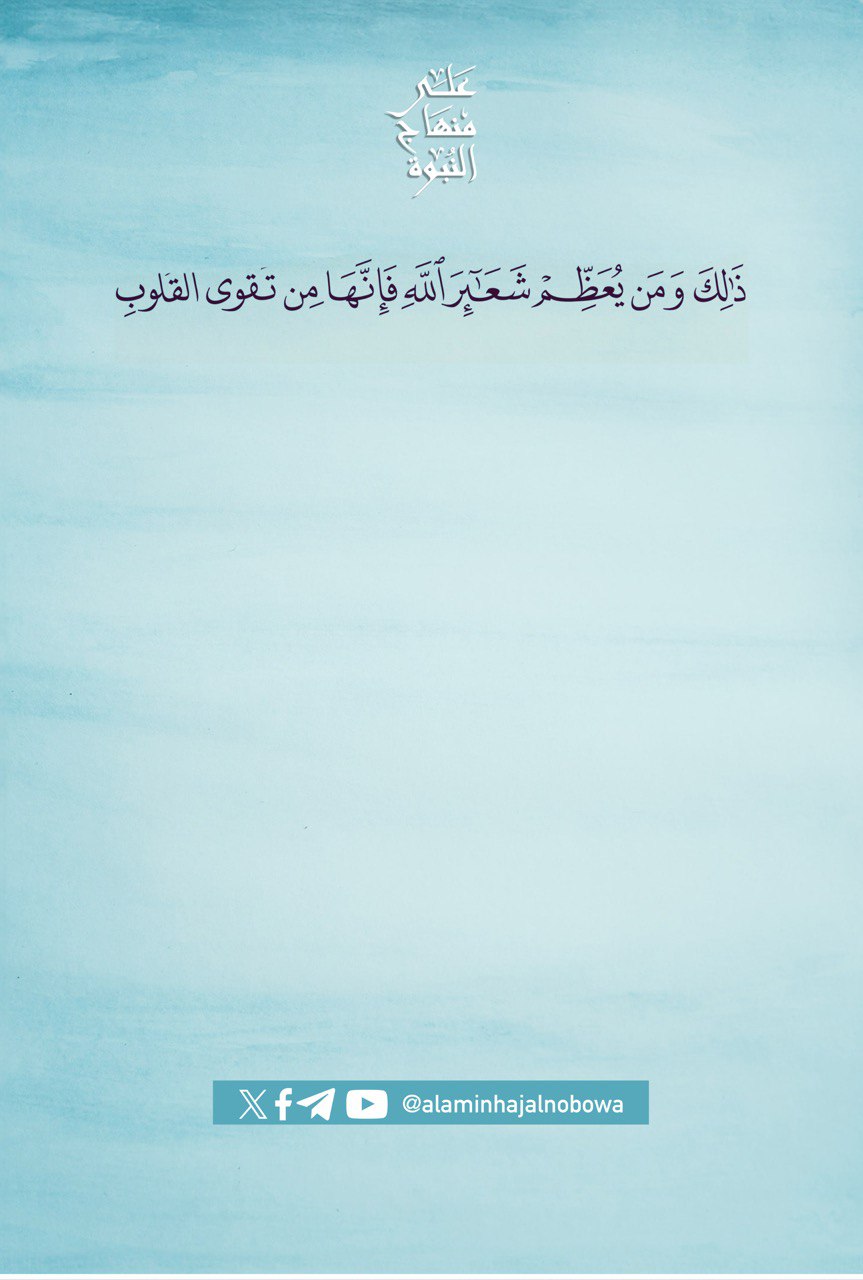 عَلَى
مِنهَاج
النُّبُوة
ذَٰلِكَ وَمَن يُعَظِّمْ شَعَـٰٓئِرَ ٱللَّهِ فَإِنَّهَا مِن تَقوى القلوبِ
@alaminhajalnobowa